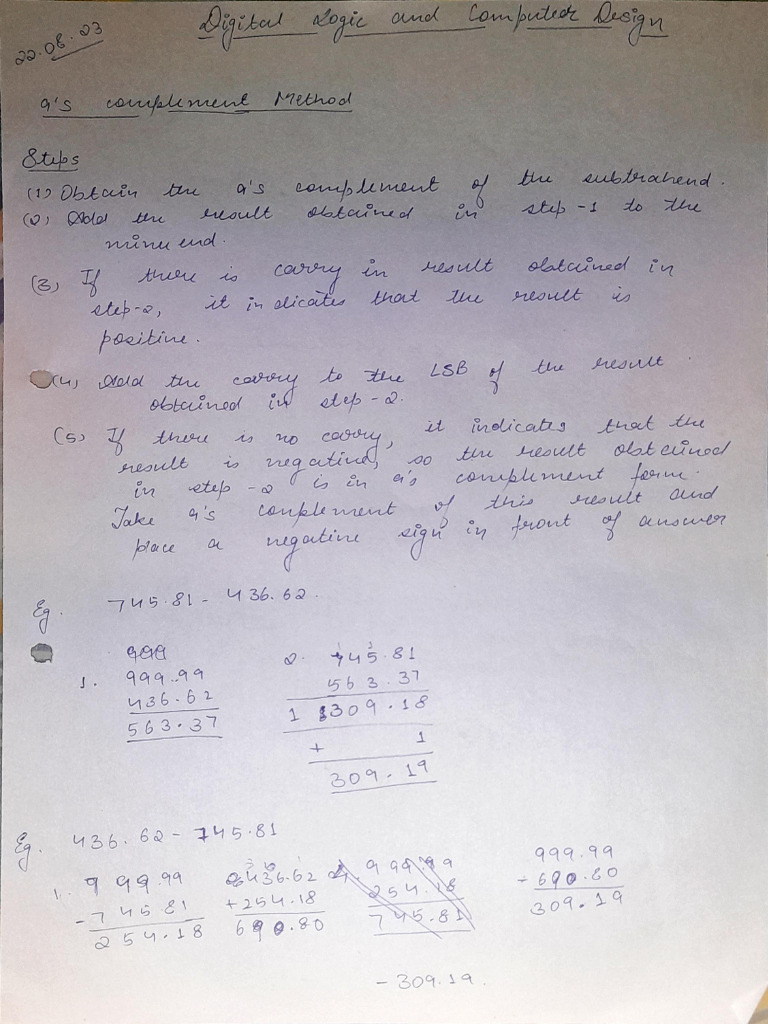 Digital Logic and Computer Design
22.08.23
9's complement Method
Steps
(1) Obtain the 9's complement of the subtrahend.
(2) Add the result obtained in step-1 to the
minuend.
(3) If there is carry in result obtained in
step-2, it indicates that the result is
positive.
(4) Add the carry to the LSB of the result
obtained in step-2.
(5) If there is no carry, it indicates that the
result is negative, so the result obtained
in step-2 is in 9's complement form.
Take 9's complement of this result and
place a negative sign in front of answer
Eg. 745.81 - 436.62.
999
1. 999.99
436.62
563.37
2. 745.81
563.37
1 309.18
+ 1
309.19
Eg. 436.62 - 745.81
1. 999.99
- 745 81
254.18
2. 436.62
+ 254.18
690.80
999.99
254.18
745.81
999.99
- 690.80
309.19
- 309.19.